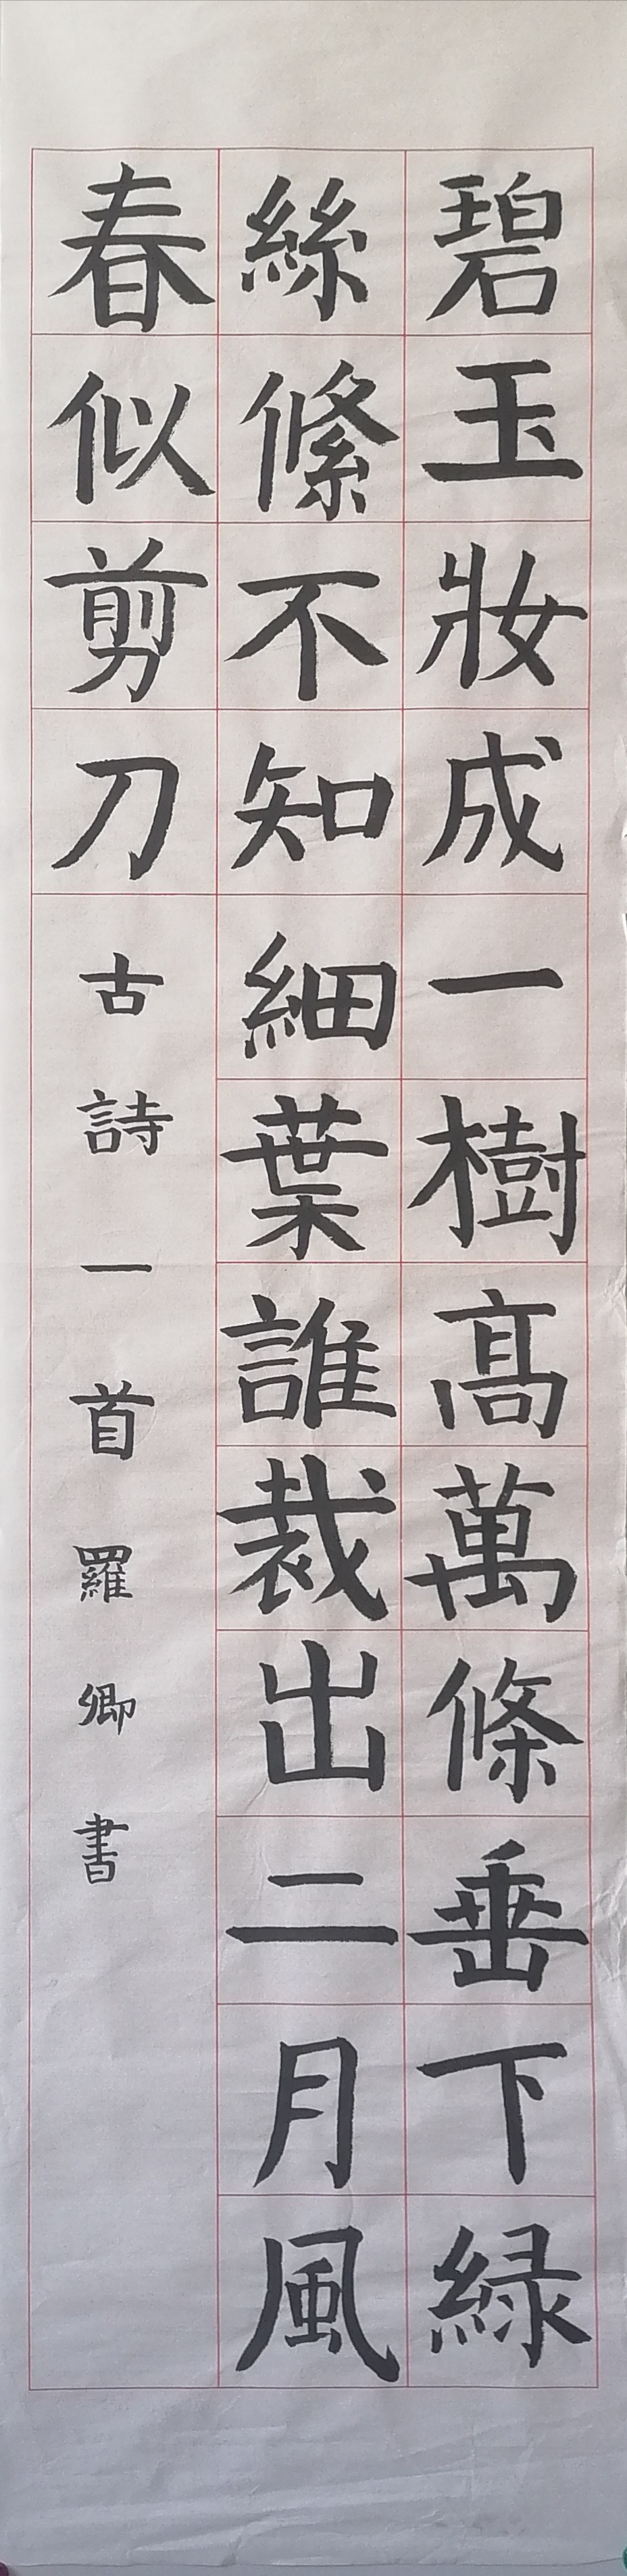 碧玉妝成一樹高萬條垂下緑
絲絛不知細葉誰裁出二月風
春似剪刀古詩一首羅卿書